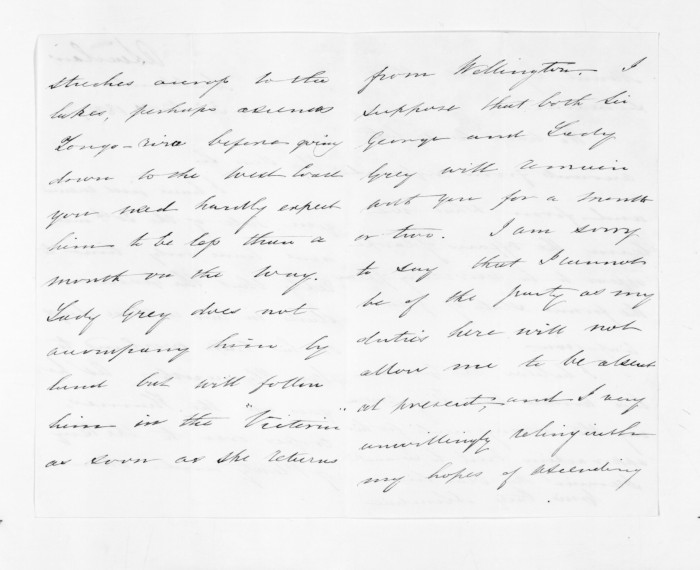 stretches across to the
lakes, perhaps ascends
Tonga-riro before going
down to the West Coast
you need hardly expect
him to be less than a
month on the way.
Lady Grey does not
accompany him by
land but will follow
him in the "Victoria"
as soon as she returns
from Wellington. I
suppose that both Sir
George and Lady
Grey will remain
with you for a month
or two. I am sorry
to say that I cannot
be of the party as my
duties here will not
allow me to be absent
at present, and I very
unwillingly relinquish
my hopes of ascending